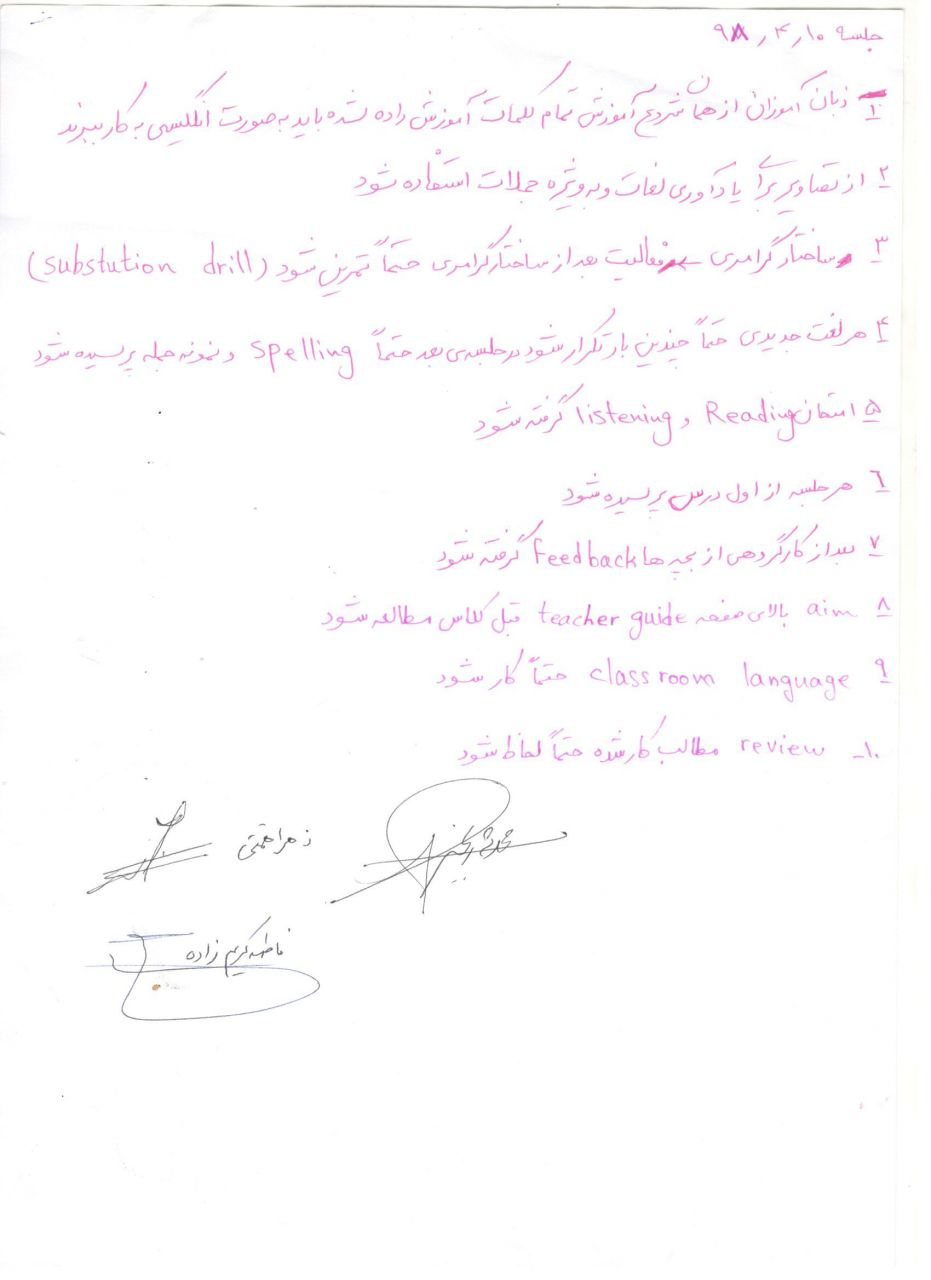 جلسه ۱۰ ر ۴ ر ۹۸
۱ زبان آموزان از همان شروع آموزش تمام کلمات آموزش داده شده باید به صورت انگلیسی به کار ببرند
۲ از تصاویر برای یادآوری لغات و به ویژه جملات استفاده شود
۳ ساختار گرامری فعالیت بعد از ساختار گرامری حتماً تمرین شود (substution drill)
۴ هر لغت جدیدی حتماً چندین بار تکرار شود در جلسه‌ی بعد حتماً spelling و نمونه جمله پرسیده شود
۵ امتحان Reading و listening گرفته شود
۶ هر جلسه از اول درس پرسیده شود
۷ بعد از کار گروهی از بچه ها feedback گرفته شود
۸ aim بالای صفحه teacher guide قبل کلاس مطالعه شود
۹ classroom language حتماً کار شود
۱۰- review مطالب کار شده حتماً لحاظ شود
زهرا
فاطمه کریم زاده